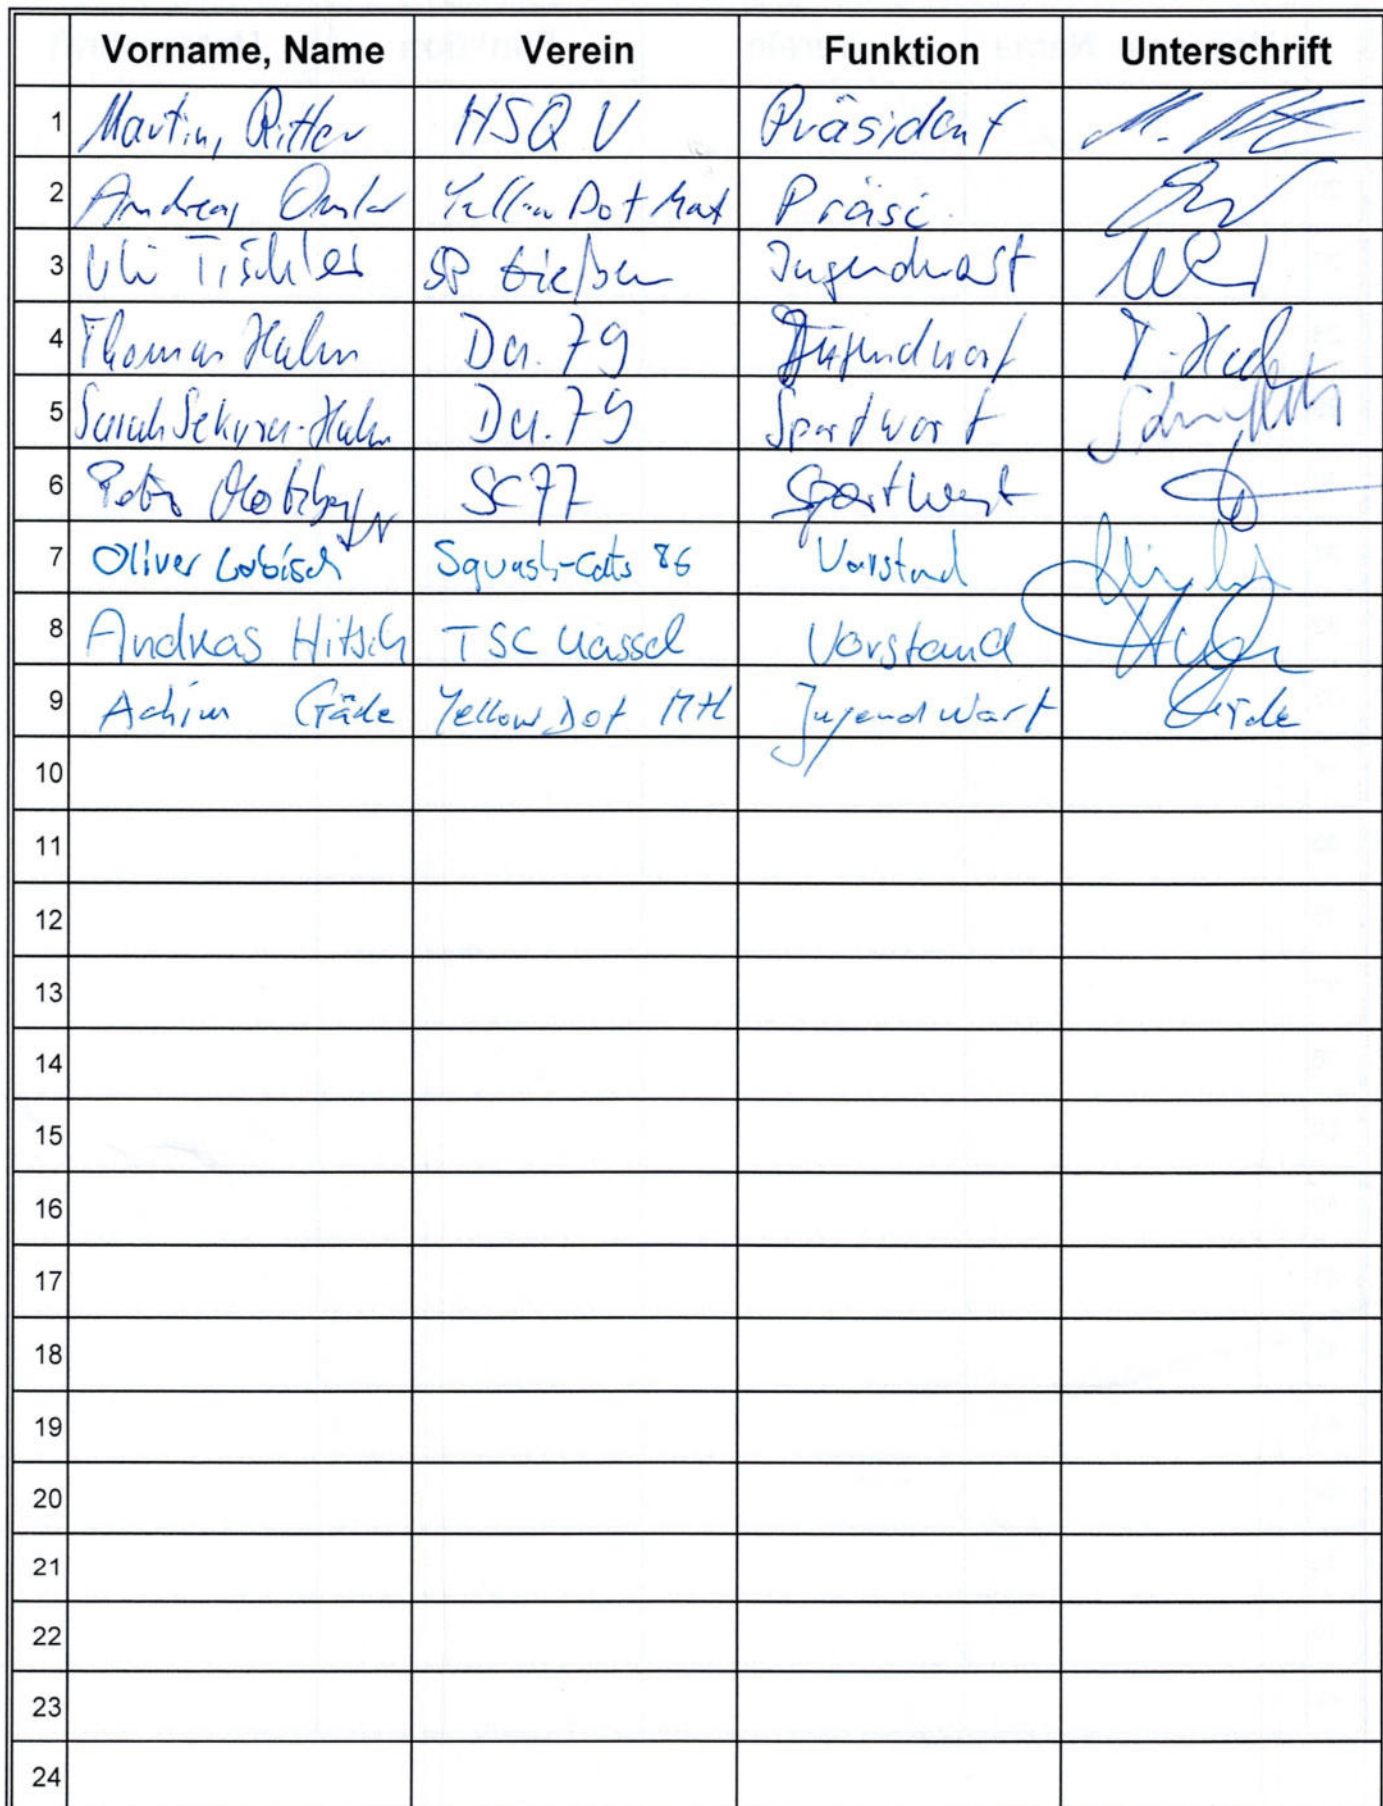 Vorname, Name Verein Funktion Unterschrift
1 Martin, Ritter HSQV Präsident M.
2 Andreas Yellow Dot Präsi.
3 Uli Tischler SP Gießen Jugendwart
4 Thomas Hahn Da. 79 Jugendwart T. Hahn
5 Sarah Sekyra-Hahn Da. 79 Sportwart
6 SC 77 Sportwart
7 Oliver Squash-Cats 86 Vorstand
8 Andreas Hitsch TSC Kassel Vorstand
9 Achim Gäde Yellow Dot MTL Jugendwart Gäde
10
11
12
13
14
15
16
17
18
19
20
21
22
23
24